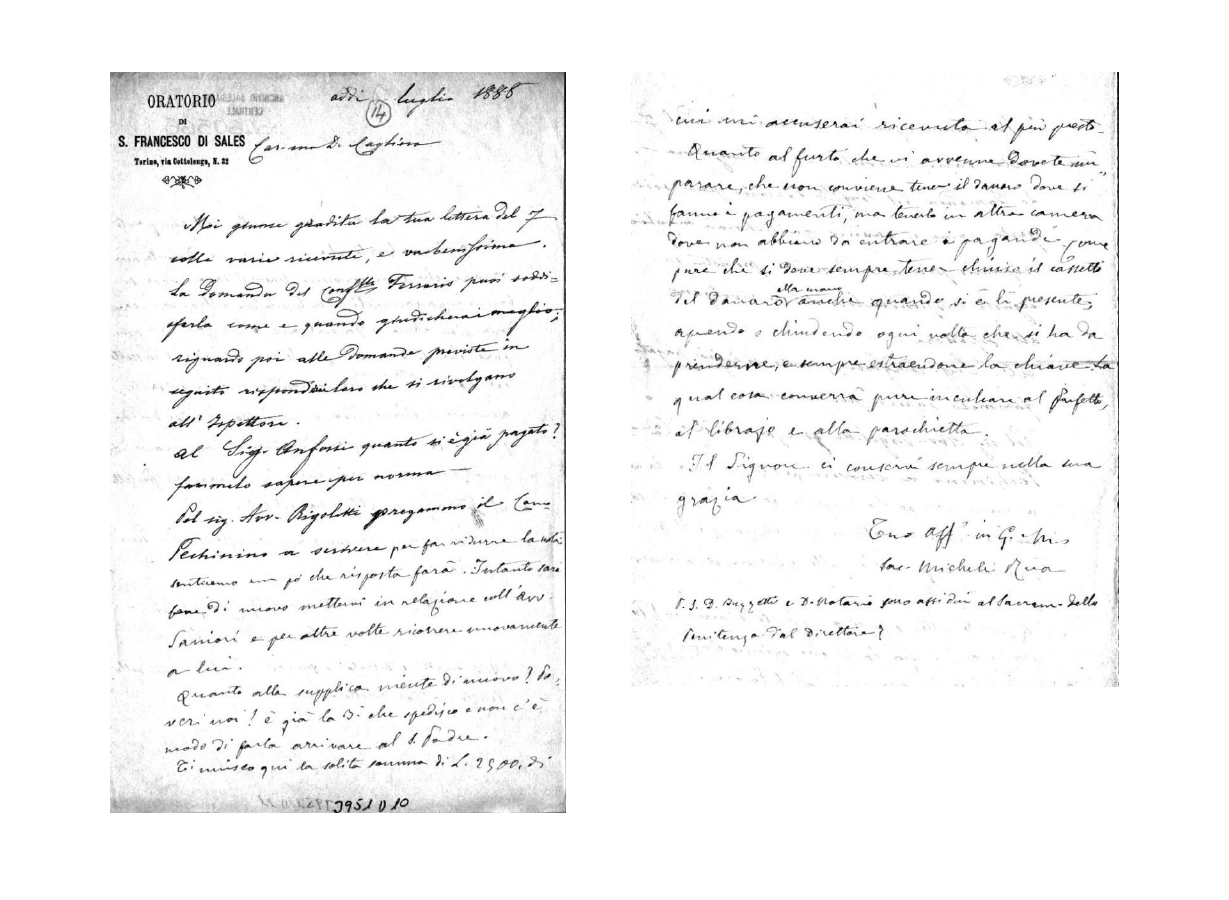 ORATORIO
DI
S. FRANCESCO DI SALES
Torino, via Cottolengo, N. 32
addì 14 luglio 1885
Car.mo D. Cagliero
Mi giunse gradita la tua lettera del 7
colle varie ricevute, e va benissimo.
La domanda del Ferraris puoi soddi-
sfarla come e quando giudicherai meglio;
riguardo poi alle domande previste in
seguito rispondi loro che si rivolgano
all' Ispettore.
Al Sig. Anfossi quanto si è già pagato?
fammelo sapere per norma —
Pel sig. Avv. Rigoletti pregammo il Can.
Pechinino a scrivere per far ridurre la nota
sentiremo un pò che risposta farà. Intanto sarà
bene di nuovo mettervi in relazione coll' Avv.
e per altre volte ricorrere nuovamente
a lui.
Quanto alla supplica niente di nuovo? Po-
veri noi! è già la 3ª che spedisco e non c'è
modo di farla arrivare al S. Padre.
Ti unisco qui la solita somma di L. 2500, di
J951010
cui mi accuserai ricevuta al più presto.
Quanto al furto che vi avvenne dovete im-
parare, che non conviene tener il danaro dove si
fanno i pagamenti, ma tenerlo in altra camera
dove non abbiano da entrare i pagandi, come
pure che si deve sempre tener chiuso il cassetto
del danaro anche quando si è lì presente,
aprendo e chiudendo ogni volta che si ha da
prenderne, e sempre estraendone la chiave. La
qual cosa converrà pure inculcare al Prefetto,
al librajo e alla parochietta.
Il Signore ci conservi sempre nella sua
grazia
Tuo Aff. in G. M.
Sac. Michele Rua
P.S. D. Buzzetti e D. Notario sono assidui al Sacram. della
Penitenza dal Direttore?